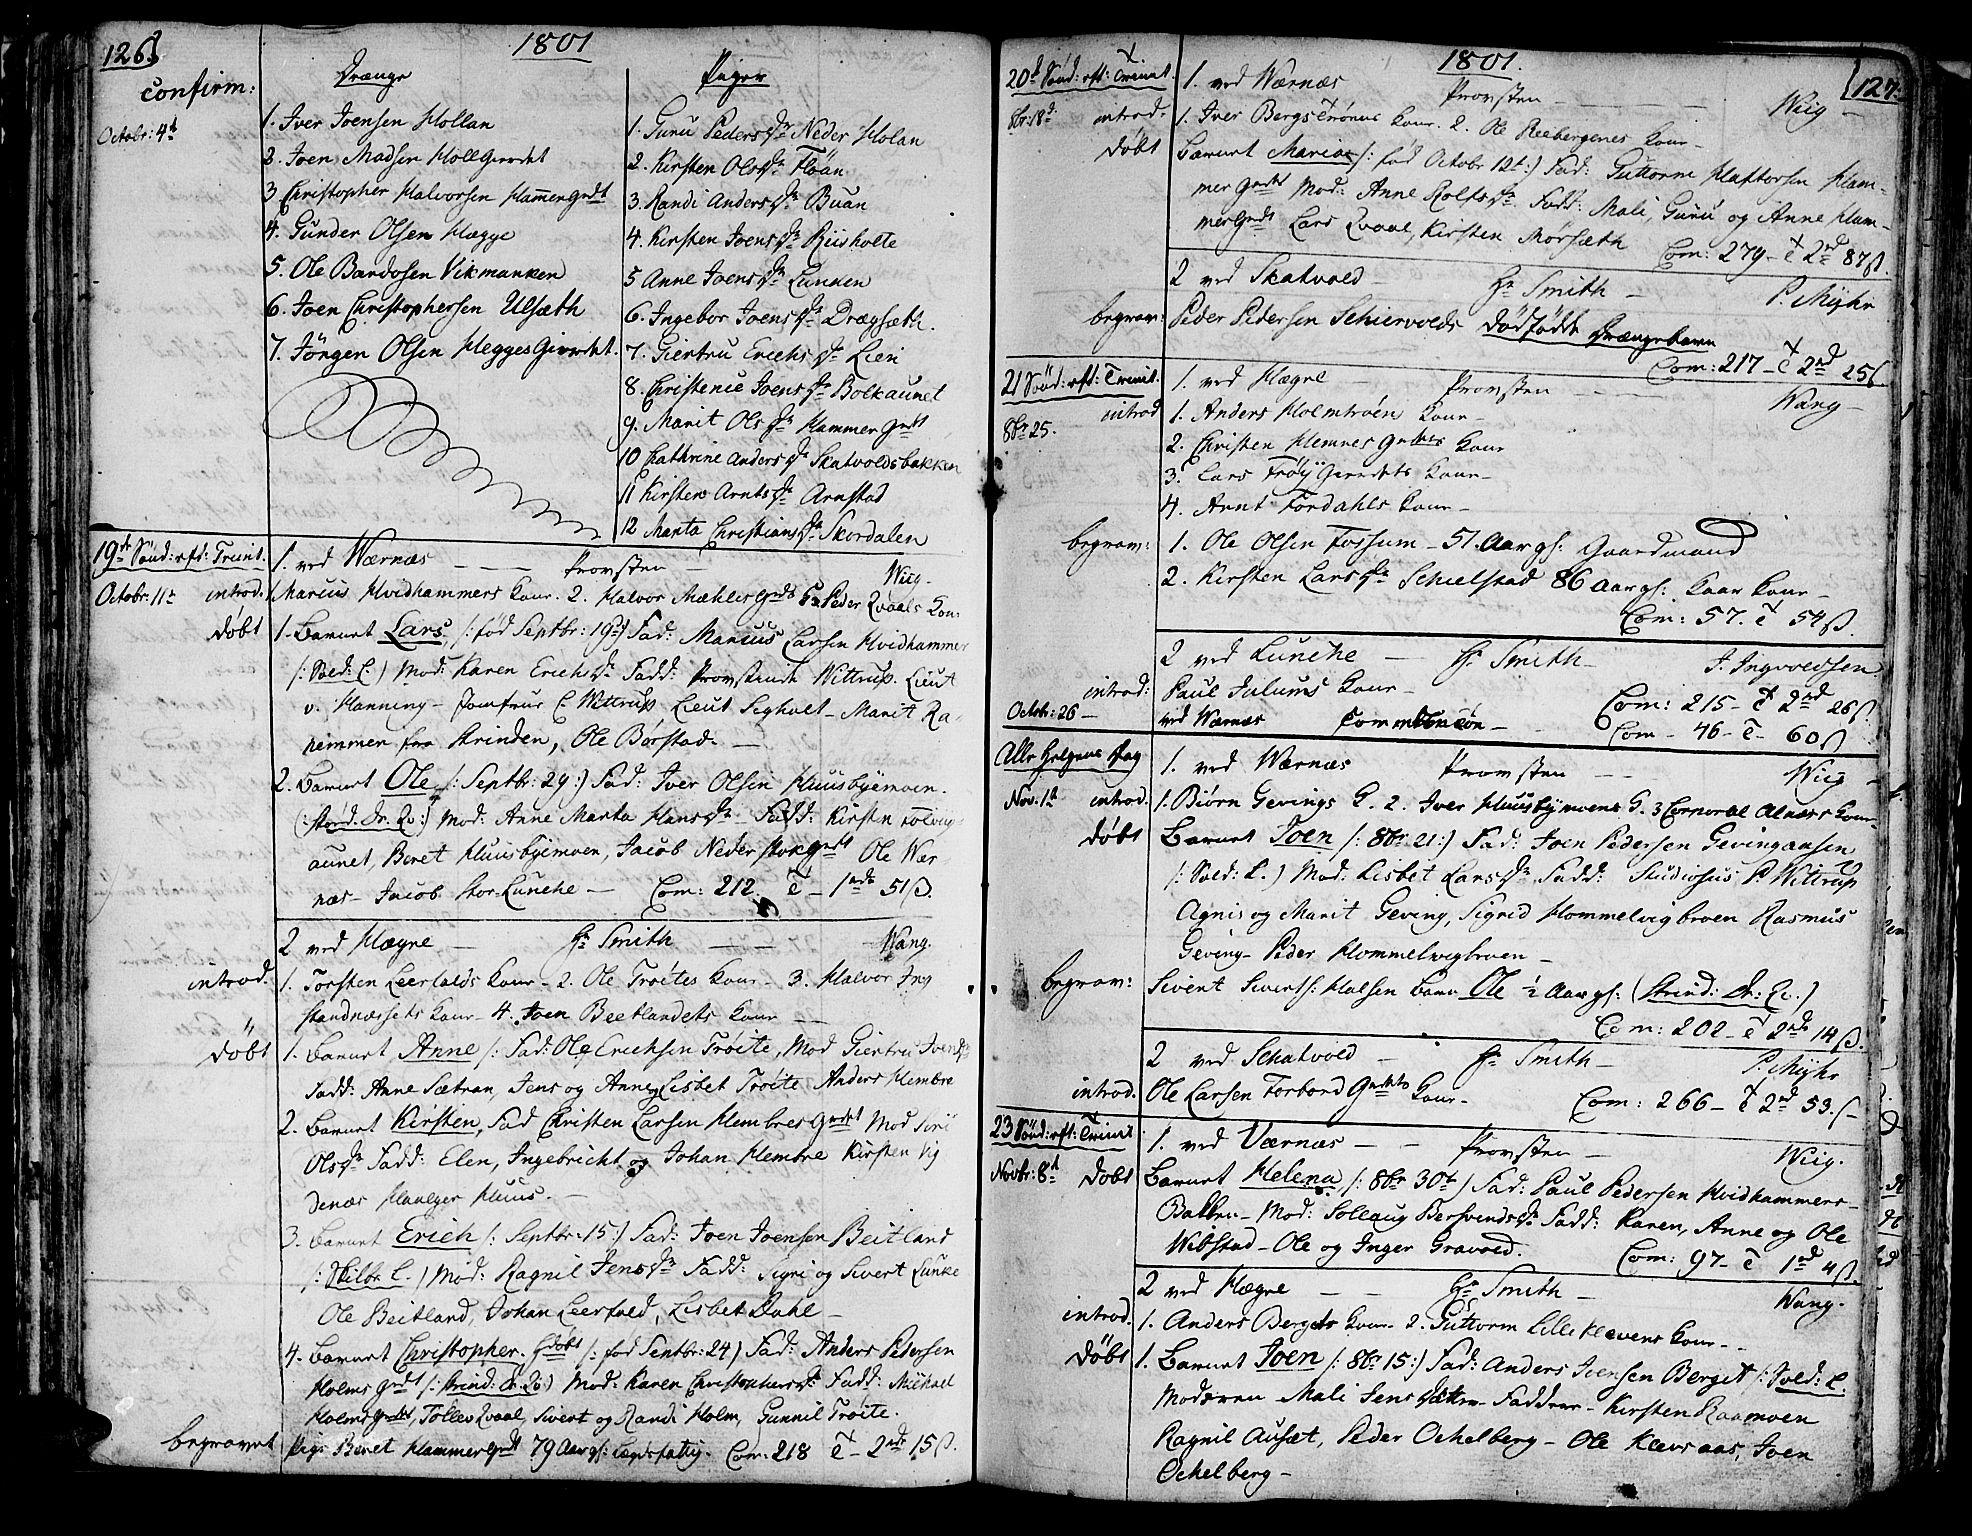 126
1801
confirm:
Octobr: 4de
Drænge
1. Iver Joensen Hollan
2. Joen Madsen Hollgierdet
3 Christopher Halvorsen Hammergrdt
4. Gunder Olsen Hægge
5. Ole Bardosen Vikmarken
6. Joen Christophersen Ulsæth
7. Jörgen Olsen Heggesgierdet
Piger
1. Guru Pedersdr Neder Holan
2. Kirsten Olsdr Flöan
3. Randi Andersdr Buan
4. Kirsten Joensdr Riisholte
5 Anne Joensdr Lunken
6. Ingebor Joensdr Dragsæth.
7. Giertru Erichsdr Lien
8. Christence Joensdr Bolkaunet
9. Marit Olsdr Hammergrdt
10 Cathrine Andersdr Skatvoldsbakken
11 Kirsten Arntsdr Arnstad
12 Marta Christiansdr Skordalen
19de Sönd: eft: Trinit.
Octobr: 11te
1. ved Wærnæs - Provsten - Wiig.
introd. Marius Hvidhammers Kone. 2. Halvor Mæhlesgrdts 3. Peder Qvaals Kon.
döbt 1. Barnet Lars /: föd Septbr: 19de :/ Fad: Marius Larsen Hvidhammer
/: Sold: L. ) Mod: Karen Erichsdr Fadd: Provstinde Wittrup. Lieut
v. Hanning - Jomfrue C. Wittrup Lieut Sigholt - Marit Ra-
nemmer fra Strinden, Ole Börstad. -
2. Barnet Ole /: Septbr: 29:/ Fad: Iver Olsen Huusbyemoen.
(: Stord. Dr. Qv:) Mod: Anne Marta Hansdr Fadd: Kirsten Solvig-
aunet, Beret Huusbyemoen, Jacob Nederstokgrdt Ole Wær-
næs - Jacob Stor-Lunche - Com: 212. T - 1rd 51ß.
2 ved Hægre - Hr Smith - Wang.
introd. 1. Torsten Leerfalds Kone - 2. Ole Tröites Kone - 3. Halvor Ing
standnæssets Kone - 4. Joen Beetlandets Kone -
döbt 1. Barnet Anne /: Fad: Ole Erichsen Tröite, Mod Giertru Joensdr
Fadd: Anne Sætran, Jens og Anne, Lisbet Tröite Anders Hembre
2. Barnet Kirsten, Fad Christen Larsen Hembresgrdet Mod Siri
Olsdr Fadd: Elen, Ingebricht og Johan Hembre Kirsten Vig
denæs Hauger Huus. -
3. Barnet Erich /: Septbr: 15:/ Fad: Joen Joensen Beitland
/: Skilbr. C. ) Mod: Ragnil Jensdr Fadd: Sigri og Sivert Lunke
Ole Beitland, Johan Leerfald, Lisbet Dahl -
4. Barnet Christopher. Hdöbt /: föd Sentbr: 24) Fad: Anders Pedersen
Holmsgrdt /: Strind: Dr. Qv:) Mod: Karen Christophersdr Fadd: Michael
Holmsgrdet, Tollev Qvaal, Sivert og Randi Holm, Gunnil Tröite.
begravet Pige Beret Hammergrdt 79 Aar gl: Legdsfattig. Com: 218 T - 2rdr 15ß.
127.
1801.
20de Sönd: eft: Trinit.
8br: 18de
1. ved Wærnæs Provsten - Wiig -
introd. 1. Iver Bergs Trönes Kone. 2. Ole Reebergenes Kone -
döbt Barnet Maria /: föd Octobr 12t:) Fad: Guttorm Haftorsen Ham-
mergrdt Mod: Anne Rolfsdr Fadd: Mali, Guru og Anne Ham-
mergrdt Lars Qvaal, Kirsten Mörsæth Com: 279 - T 2rd 87ß.
2 ved Skatvold - Hr Smith - P. Myhr
begrav: Peder Pedersen Schiervolds dödfödte Drængebarn
Com: 217 - T 2rd 25ß
21 Sönd: eft: Trinit.
8br 25.
1. ved Hægre Provsten - Wang -
introd 1. Anders Holmtröen Kone -
2. Christen Hemnesgrdts Kone
3. Lars Tröigierdets Kone -
4. Arnt Fordahls Kone -
begrav: 1. Ole Olsen Fossum - 51. Aar gl: Gaardmand
2. Kirsten Larsdr Schielstad 86 Aar gl: Kaar Kone -
Com: 57. T 54ß.
2 ved Lunche - Hr Smith - J. Ingvoldsen
introd: Paul Julums Kone - Com: 215 - T 2rd 26ß.
Octobr: 26 - ved Wærnæs Communion - Com - 46 - T - 60ß
Alle Helgens Dag
Nov. 1te
1. ved Wærnæs Provsten - Wiig -
introd. 1. Biörn Gevings K. 2. Iver Huusbymoens K. 3 Corporal Alnæss Kone
döbt Barnet Joen /: 8br 21:) Fad: Joen Pedersen Gevingaasen
/: Sold: L. ) Mod: Lisbet Larsdr Fadd: Studiosus P. Wittrup
Agnis og Marit Geving, Sigrid Hommelvigbroen Rasmus
Geving - Peder Hommelvigbroen -
begrav: Sivert Siverts: Halsen Barn Ole ½ Aar gl: (Strind: Dr. Qv.)
Com: 202 - T 2rd 14ß.
2 ved Schatvold - Hr Smith - P. Myhr
introd. Ole Larsen Forbordgrdets Kone - Com: 266 - T 2rd 53.ß -
23 Sönd: eft: Trinit
Novbr: 8de
1. ved Værnæs - Provsten - Wiig.
döbt Barnet Helena /: 8br 30te) Fad: Paul Pedersen Hvidhammers-
Bakken - Mod: Sollaug Bersvendsdr Fadd: Karen, Anne og Ole
Wibstad - Ole og Inger Gravold. Com: 97 - T 1rd 4ß.
2 ved Hægre - Hr Smith - Wang.
introd. 1. Anders Bergets Kone - 2. Guttorm Lille Klevens Kone - -
döbt 1. Barnet Joen /: 8br 15:) Fad: Anders Joensen Berget /: Sold: L.
Moderen Mali Jensdatter - Faddere - Kirsten Raamoen
Ragnil Ausæt, Peder Ochelberg - Ole Klevsaas, Joen
Ochelberg -